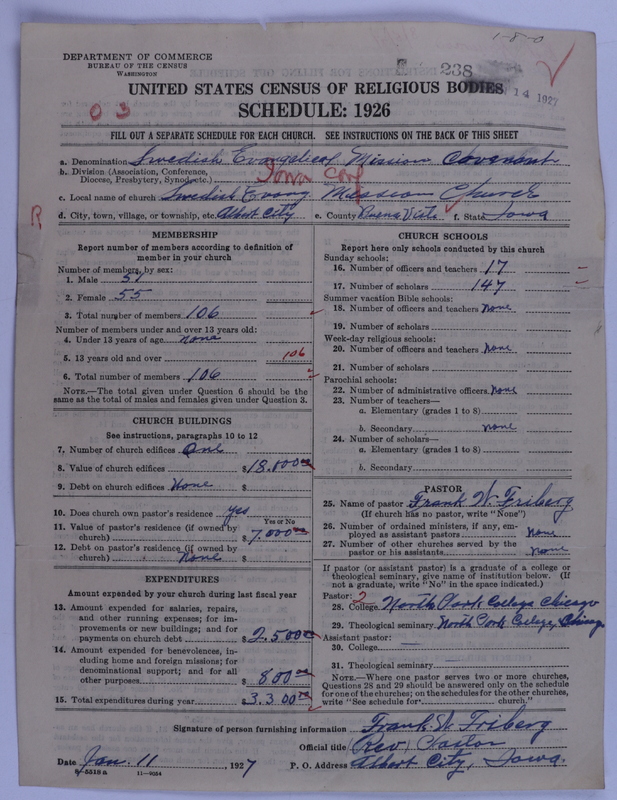 1-8-0
DEPARTMENT OF COMMERCE
BUREAU OF THE CENSUS
WASHINGTON
238
14 1927
UNITED STATES CENSUS OF RELIGIOUS BODIES
03
SCHEDULE: 1926
FILL OUT A SEPARATE SCHEDULE FOR EACH CHURCH. SEE INSTRUCTIONS ON THE BACK OF THIS SHEET
a. Denomination Swedish Evangelical Mission Covenant
b. Division (Association, Conference,
Diocese, Presbytery, Synod, etc.) Iowa Conf
c. Local name of church Swedish Evang Mission Church
R
d. City, town, village, or township, etc. Albert City e. County Buena Vista f. State Iowa
MEMBERSHIP
Report number of members according to definition of
member in your church
Number of members by sex:
1. Male 51
2. Female 55
3. Total number of members 106
Number of members under and over 13 years old:
4. Under 13 years of age none
5. 13 years old and over 106
6. Total number of members 106
NOTE.—The total given under Question 6 should be the
same as the total of males and females given under Question 3.
CHURCH BUILDINGS
See instructions, paragraphs 10 to 12
7. Number of church edifices One
8. Value of church edifices $18.000 00
9. Debt on church edifices None $
10. Does church own pastor's residence yes
Yes or No
11. Value of pastor's residence (if owned by
church) $7.000 00
12. Debt on pastor's residence (if owned by
church) None $
EXPENDITURES
Amount expended by your church during last fiscal year
13. Amount expended for salaries, repairs,
and other running expenses; for im-
provements or new buildings; and for
payments on church debt $2.500
14. Amount expended for benevolences, in-
cluding home and foreign missions; for
denominational support; and for all
other purposes $800
15. Total expenditures during year $3.300
CHURCH SCHOOLS
Report here only schools conducted by this church
Sunday schools:
16. Number of officers and teachers 17
17. Number of scholars 147
Summer vacation Bible schools:
18. Number of officers and teachers none
19. Number of scholars
Week-day religious schools:
20. Number of officers and teachers none
21. Number of scholars
Parochial schools:
22. Number of administrative officers none
23. Number of teachers—
a. Elementary (grades 1 to 8)
b. Secondary none
24. Number of scholars—
a. Elementary (grades 1 to 8)
b. Secondary
PASTOR
25. Name of pastor Frank W. Friberg
(If church has no pastor, write "None")
26. Number of ordained ministers, if any, em-
ployed as assistant pastors none
27. Number of other churches served by the
pastor or his assistants none
If pastor (or assistant pastor) is a graduate of a college or
theological seminary, give name of institution below. (If
not a graduate, write "No" in the space indicated.)
Pastor: 2
28. College North Park College Chicago
29. Theological seminary North Park College, Chicago
Assistant pastor:
30. College
31. Theological seminary
NOTE.—Where one pastor serves two or more churches,
Questions 28 and 29 should be answered only on the schedule
for one of the churches; on the schedules for the other churches,
write "See schedule for church."
Signature of person furnishing information Frank. W. Friberg
Official title (Rev) Pastor
Date Jan. 11, 1927 P. O. Address Albert City, Iowa.
8-5518a 11-9054